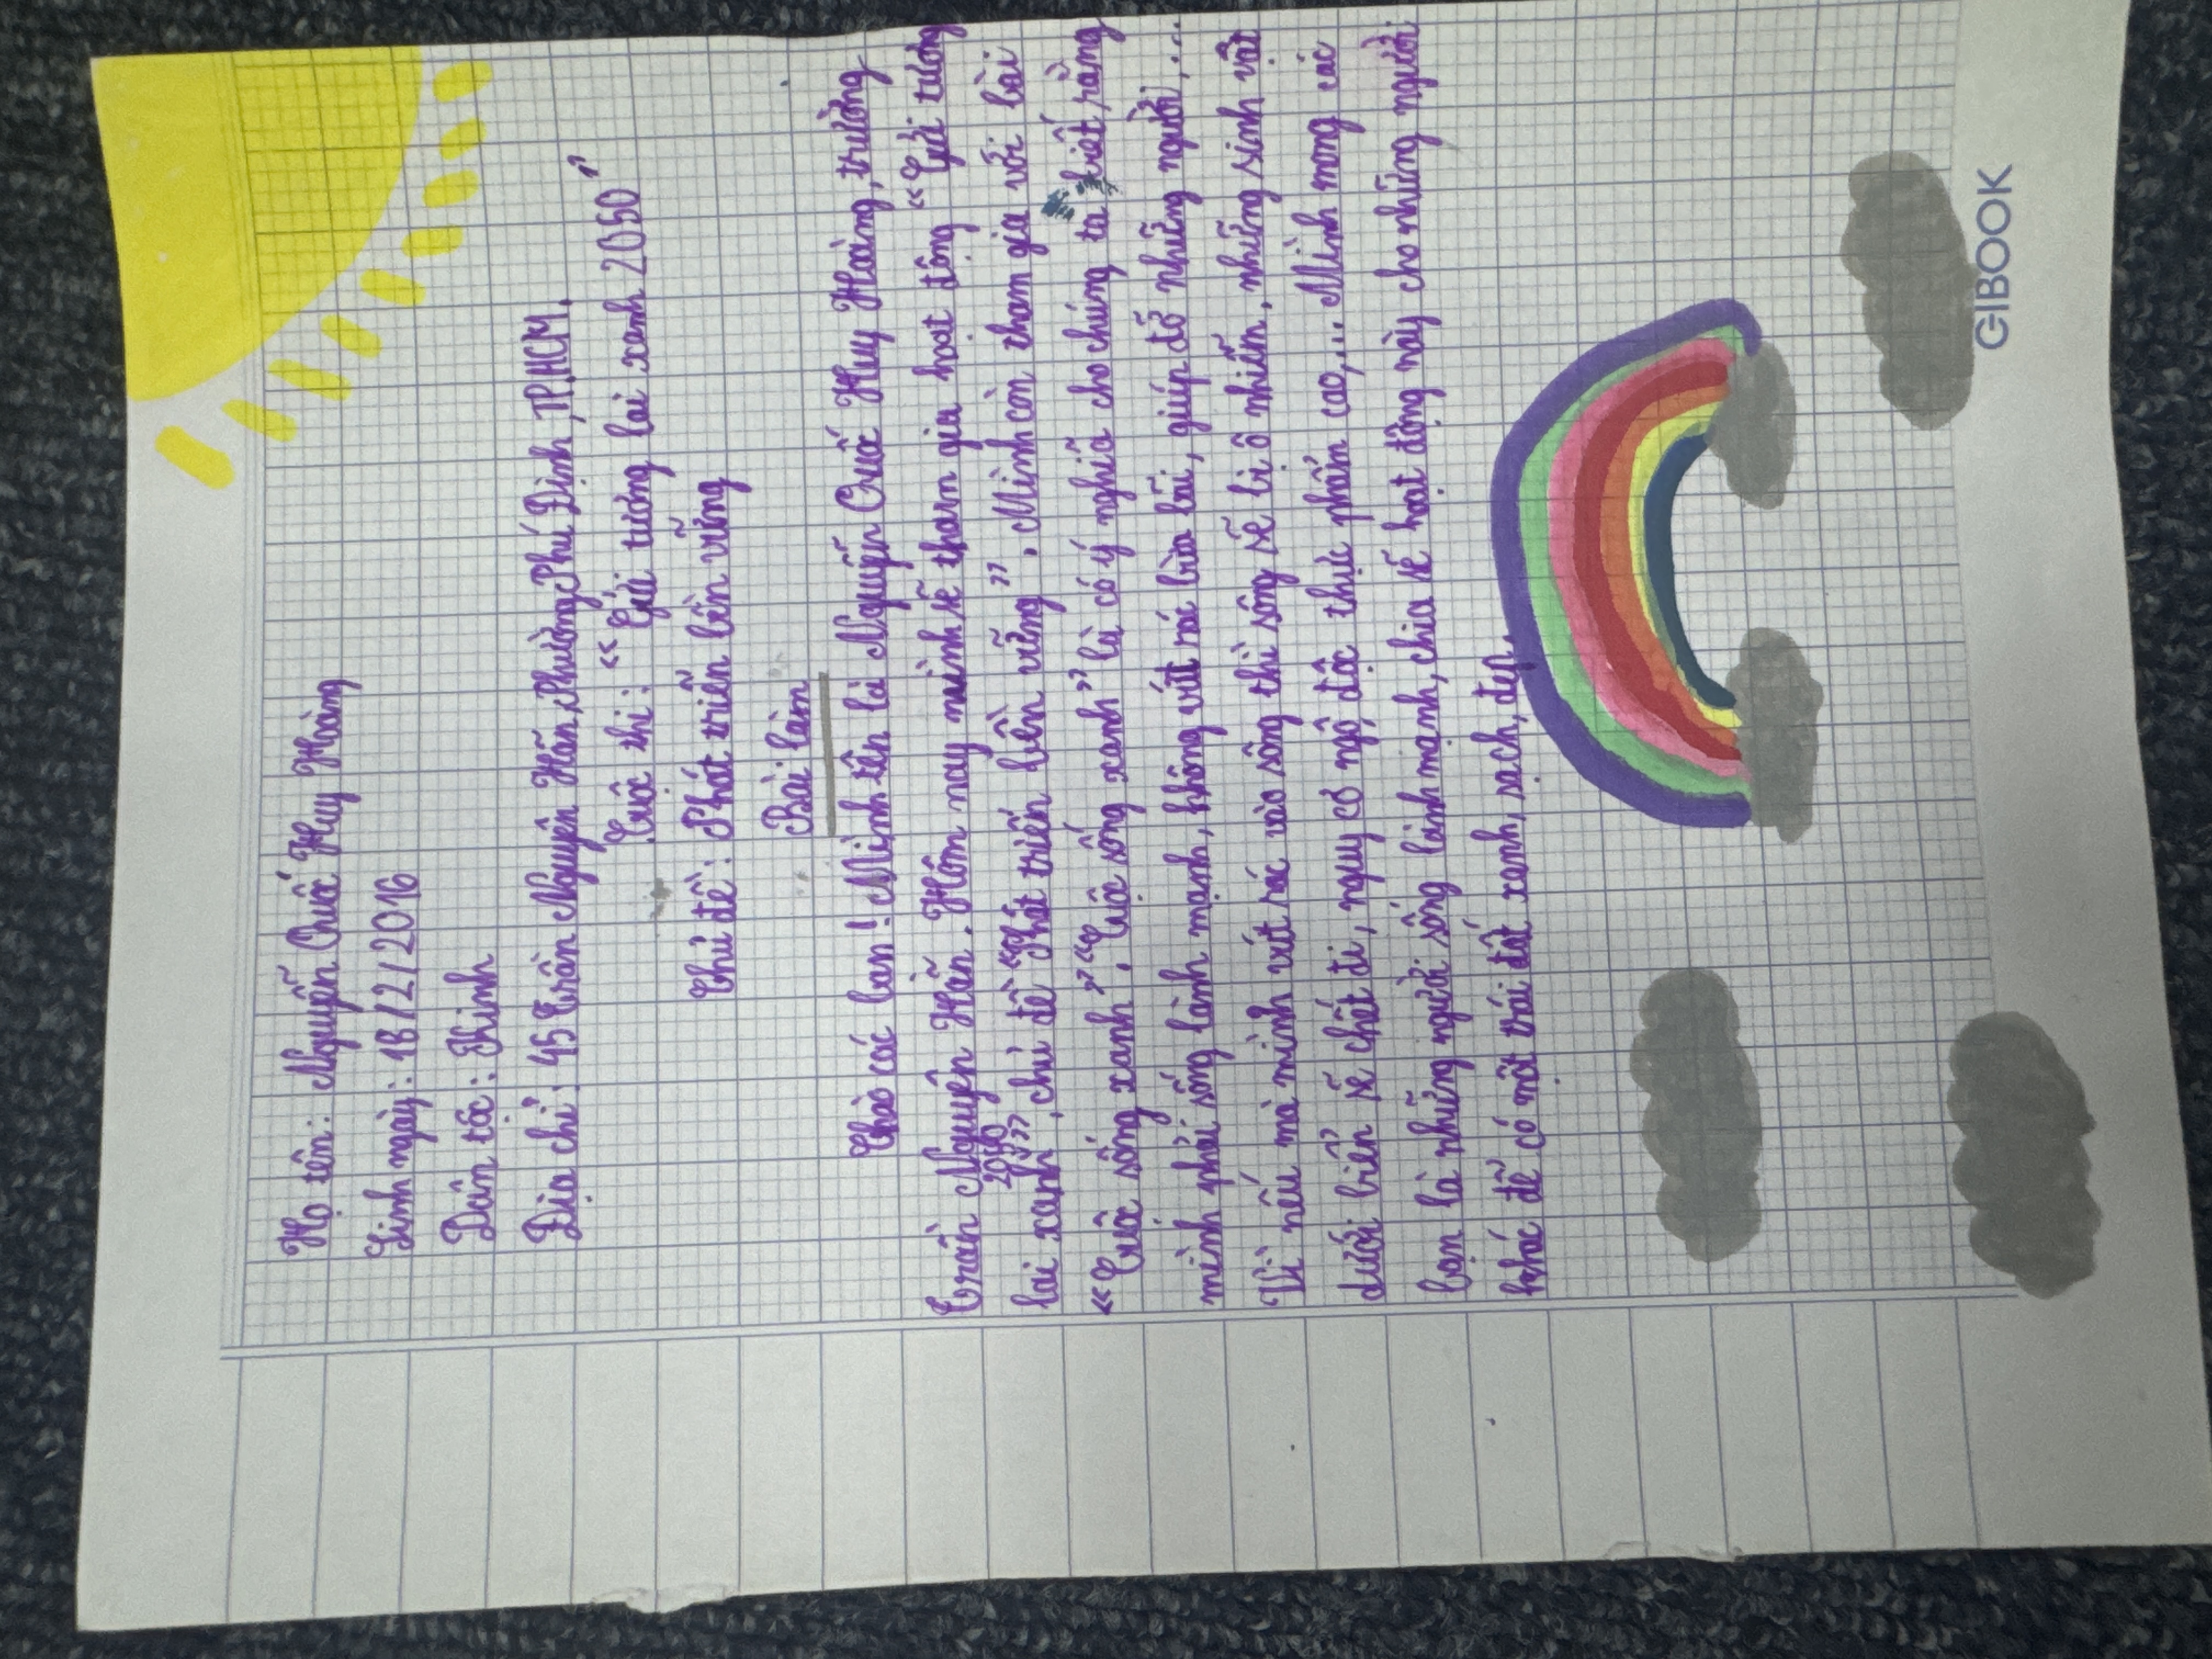 Họ tên: Nguyễn Quốc Huy Hoàng
Sinh ngày: 18/2/2016
Dân tộc: Kinh
Địa chỉ: 45 Trần Nguyên Hãn, Phường Phú Định, TP.HCM.
Cuộc thi: "Gửi tương lai xanh 2050"
Chủ đề: Phát triển bền vững
Bài làm
Chào các bạn! Mình tên là Nguyễn Quốc Huy Hoàng, trường
Trần Nguyên Hãn. Hôm nay mình sẽ tham gia hoạt động "Gửi tương
lai xanh 2050", chủ đề "Phát triển bền vững". Mình còn tham gia với bài
"Cuộc sống xanh". "Cuộc sống xanh" là có ý nghĩa cho chúng ta biết rằng
mình phải sống lành mạnh, không vứt rác bừa bãi, giúp đỡ những người,...
Vì nếu mà mình vứt rác vào sông thì sông sẽ bị ô nhiễm, những sinh vật
dưới biển sẽ chết đi, nguy cơ ngộ độc thực phẩm cao,... Mình mong các
bạn là những người sống lành mạnh, chia sẻ hoạt động này cho những người
khác để có một trái đất xanh, sạch, đẹp.
GIBOOK